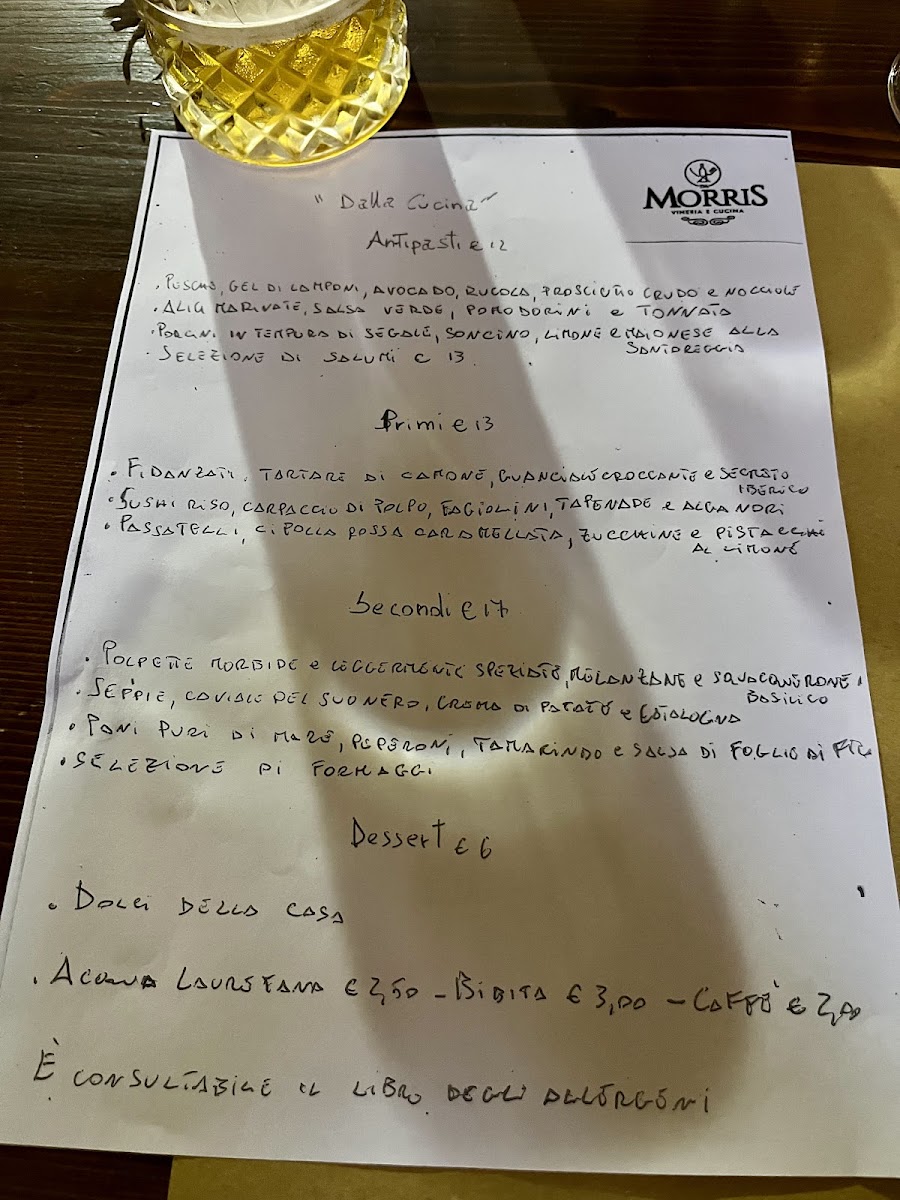 MORRIS
VINERIA E CUCINA
"Dalla Cucina"
Antipasti € 12
. PUCCIA, GEL DI LAMPONI, AVOCADO, RUCOLA, PROSCIUTTO CRUDO e NOCCIOLE
. ALICI MARINATE, SALSA VERDE, POMODORINI e TONNATA
. PORCINI IN TEMPURA DI SEGALE, SONCINO, LIMONE e MAIONESE ALLA
SANTOREGGIA
. SELEZIONE DI SALUMI € 13
Primi € 13
. FIDANZATI, TARTARE DI, GUANCIALE CROCCANTE e SECRETO
IBERICO
. SUSHI RISO, CARPACCIO DI POLPO, FAGIOLINI, TAPENADE e ALGA NORI
. PASSATELLI, CIPOLLA ROSSA CARAMELLATA, ZUCCHINE e PISTACCHI
AL LIMONE
Secondi € 17
. POLPETTE MORBIDE e LEGGERMENTE SPEZIATE, MELANZANE e SQUACQUERONE,
BASILICO
. SEPPIE, CAVIALE DEL SUO NERO, CREMA DI PATATE e
. PANI PURI DI MARE, PEPERONI, TAMARINDO e SALSA DI FOGLIO DI FICO
. SELEZIONE DI FORMAGGI
Dessert € 6
. DOLCI DELLA CASA
. ACQUA LAURETANA € 2,50 - BIBITA € 3,00 - CAFFÈ € 2,00
È CONSULTABILE IL LIBRO DEGLI ALLERGENI